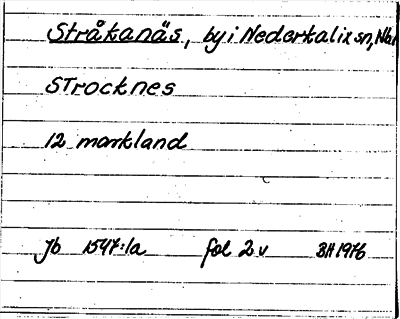 Stråkanäs, by i Nederkalix sn, Nb
STrocknes
12 markland
Jb 1547:1a fol 2v BH 1976